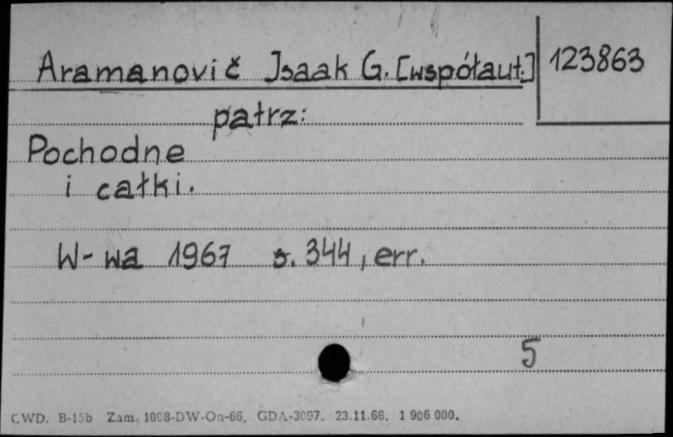 Aramanovič Isaak G. [współaut.] 123863
patrz:
Pochodne
i całki.
W-wa 1967 s. 344, err.
5
CWD. B-15b Zam. 1008-DW-On-66. GDA-3097. 23.11.66. 1 906 000.